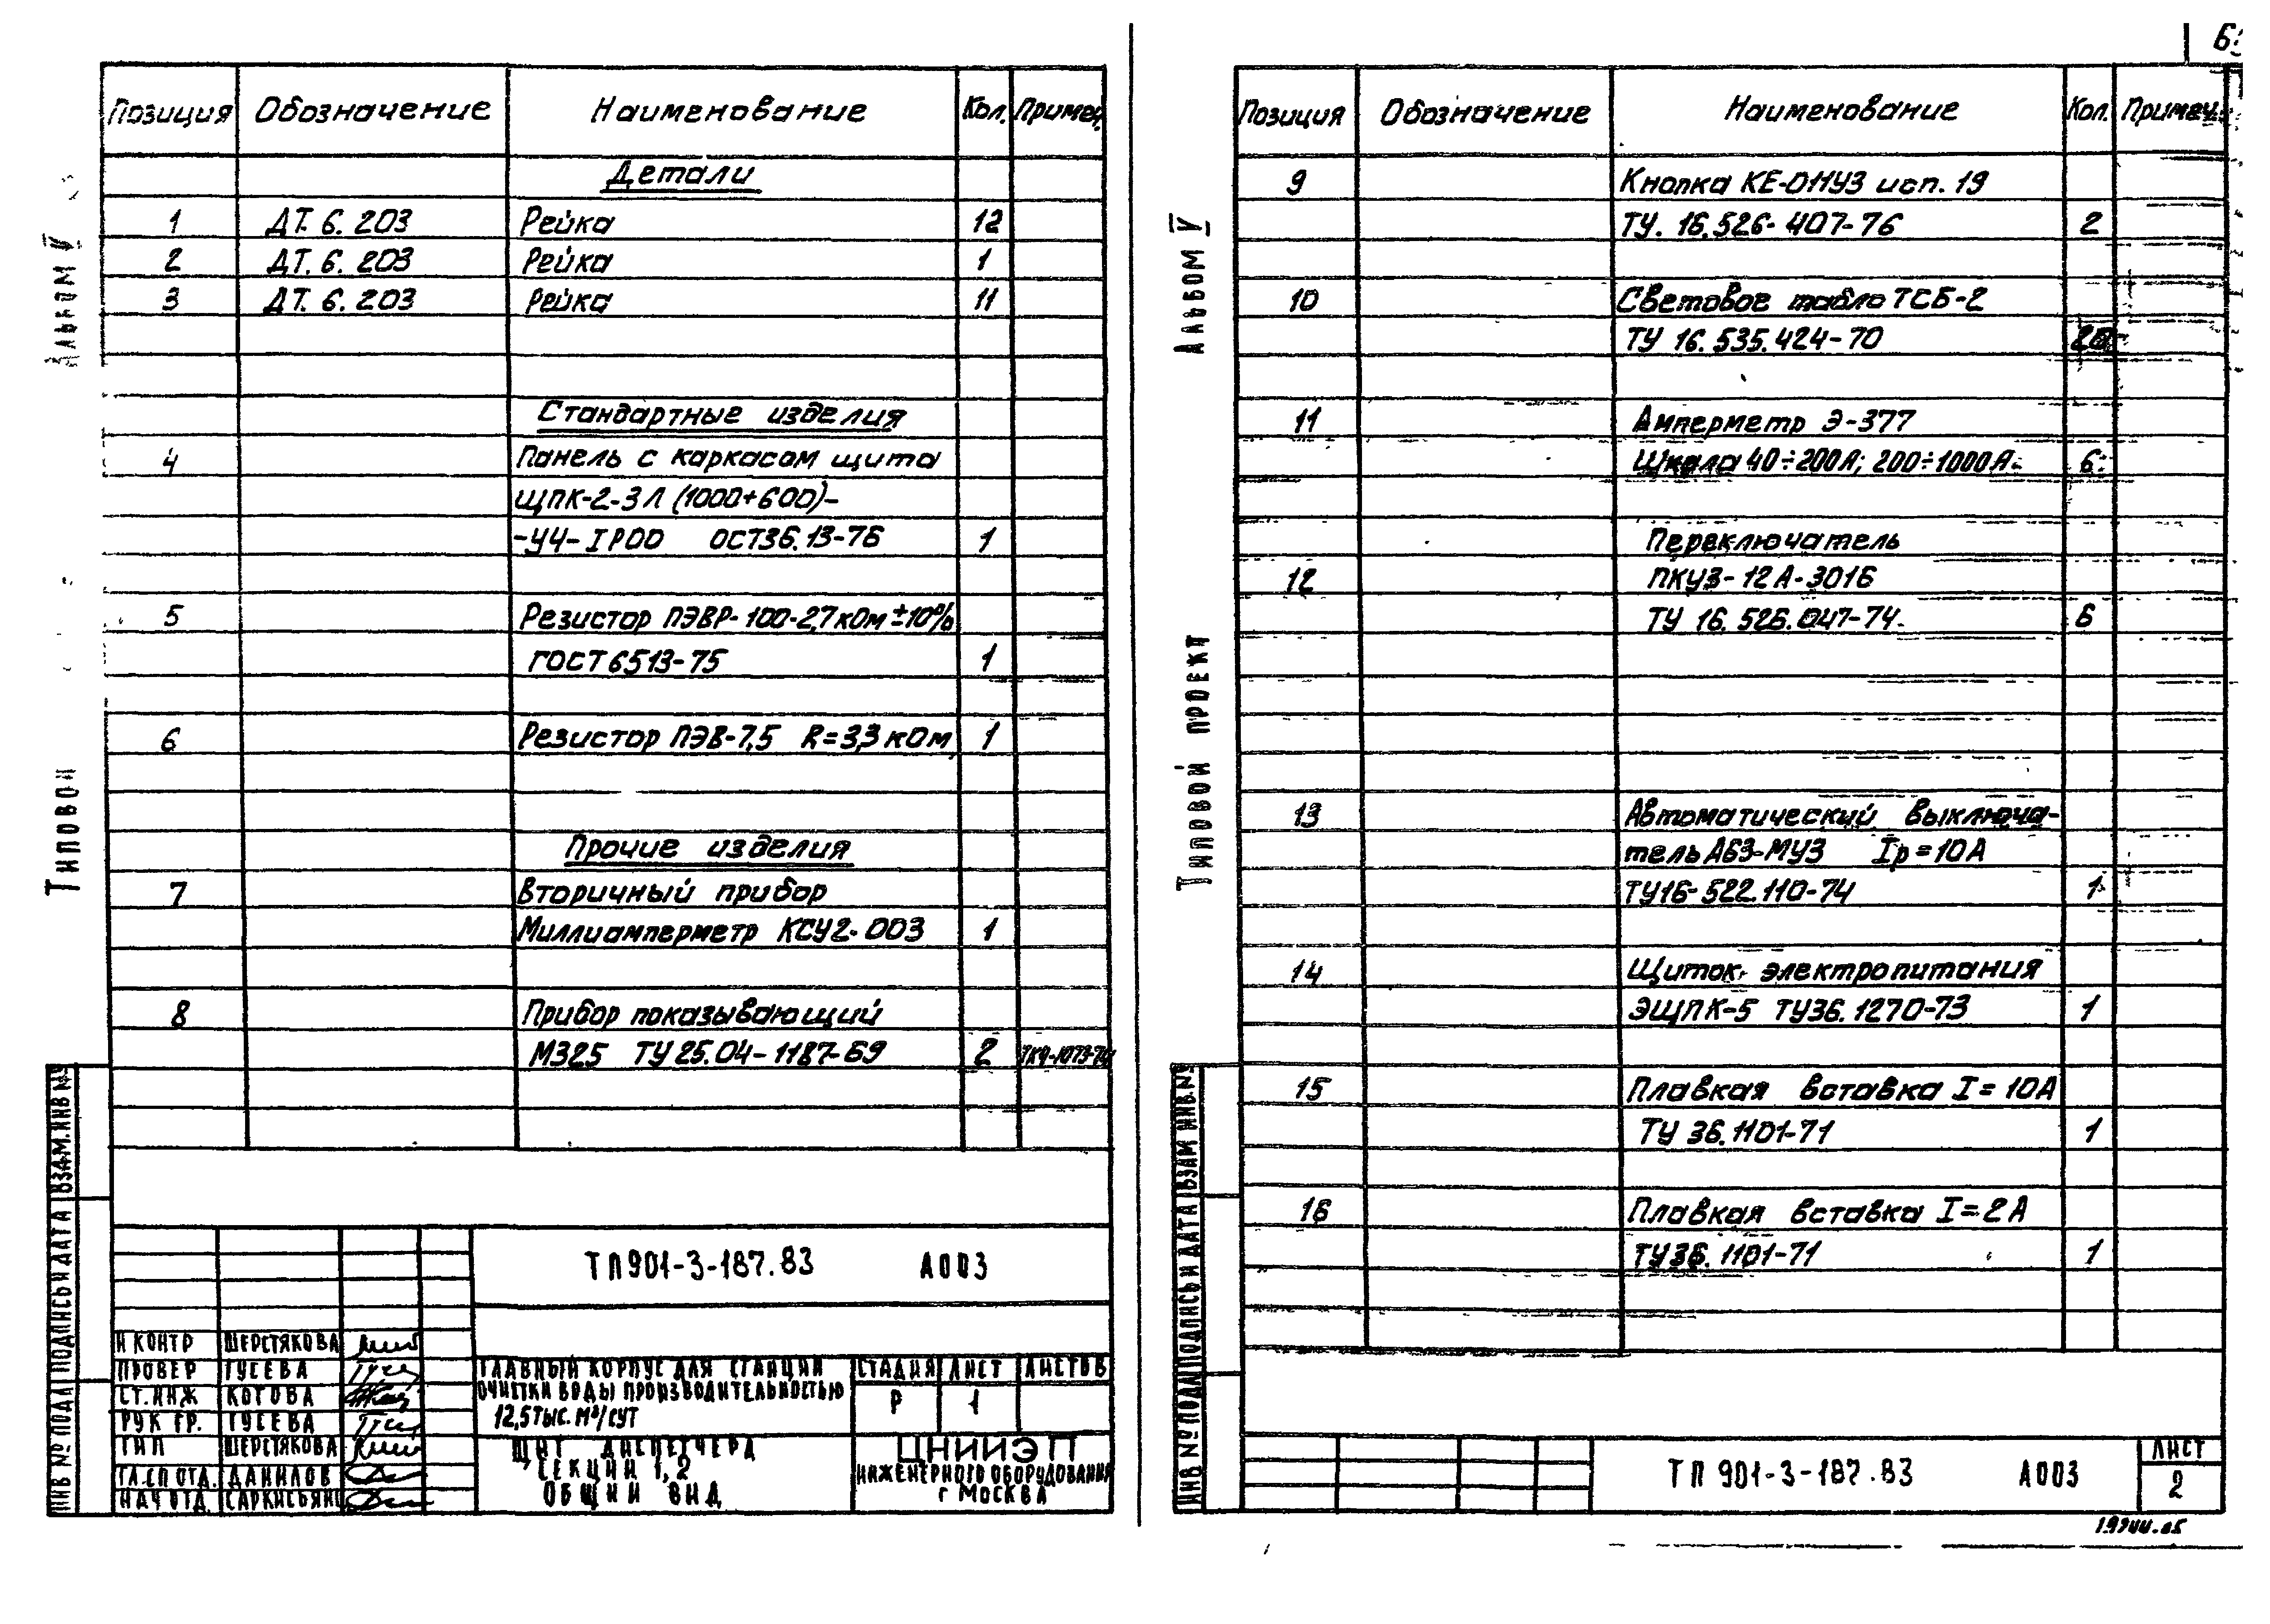 Альбом V
Типовой
Позиция Обозначение Наименование Кол. Примеч.
Детали
1 ДТ. 6. 203 Рейка 12
2 ДТ. 6. 203 Рейка 1
3 ДТ. 6. 203 Рейка 11
Стандартные изделия
4 Панель с каркасом щита
ЩПК-2-3Л (1000+600)-
-У4-IP00 ОСТ36.13-76 1
5 Резистор ПЭВР-100-2,7кОм ±10%
ГОСТ6513-75 1
6 Резистор ПЭВ-7,5 R=3,3 кОм 1
Прочие изделия
7 Вторичный прибор
Миллиамперметр КСУ2-003 1
8 Прибор показывающий
М325 ТУ 25.04-1187-69 2 ТК4-1073-74
ТП901-3-187.83 А003
Н КОНТР ШЕРСТЯКОВА
ПРОВЕР ГУСЕВА
СТ. ИНЖ КОТОВА
РУК ГР. ГУСЕВА
ГИП ШЕРСТЯКОВА
ГЛ.СП ОТД. ДАНИЛОВ
НАЧ ОТД. САРКИСЬЯНЦ
ГЛАВНЫЙ КОРПУС ДЛЯ СТАНЦИИ
ОЧИСТКИ ВОДЫ ПРОИЗВОДИТЕЛЬНОСТЬЮ
12,5 ТЫС. М³/СУТ
СТАДИЯ ЛИСТ ЛИСТОВ
Р 1
ЩИТ ДИСПЕТЧЕРА
СЕКЦИИ 1, 2
ОБЩИЙ ВИД
ЦНИИЭП
ИНЖЕНЕРНОГО ОБОРУДОВАНИЯ
г МОСКВА
ИНВ № ПОДЛ ПОДПИСЬ И ДАТА ВЗАМ. ИНВ №
Альбом V
Типовой проект
Позиция Обозначение Наименование Кол. Примеч.
9 Кнопка КЕ-011У3 исп. 19
ТУ. 16.526-407-76 2
10 Световое табло ТСБ-2
ТУ 16.535.424-70
11 Амперметр Э-377
Шкала 40÷200А; 200÷1000А 6
Переключатель
12 ПКУ3-12А-3016
ТУ 16.526.047-74 6
13 Автоматический выключа-
тель А63-МУ3 Iр=10А
ТУ16-522.110-74 1
14 Щиток электропитания
ЭЩПК-5 ТУ36.1270-73 1
15 Плавкая вставка I=10А
ТУ 36.1101-71 1
16 Плавкая вставка I=2А
ТУ36.1101-71 1
ТП 901-3-187.83 А003
ЛИСТ
2
ИНВ № ПОДЛ ПОДПИСЬ И ДАТА ВЗАМ ИНВ. №